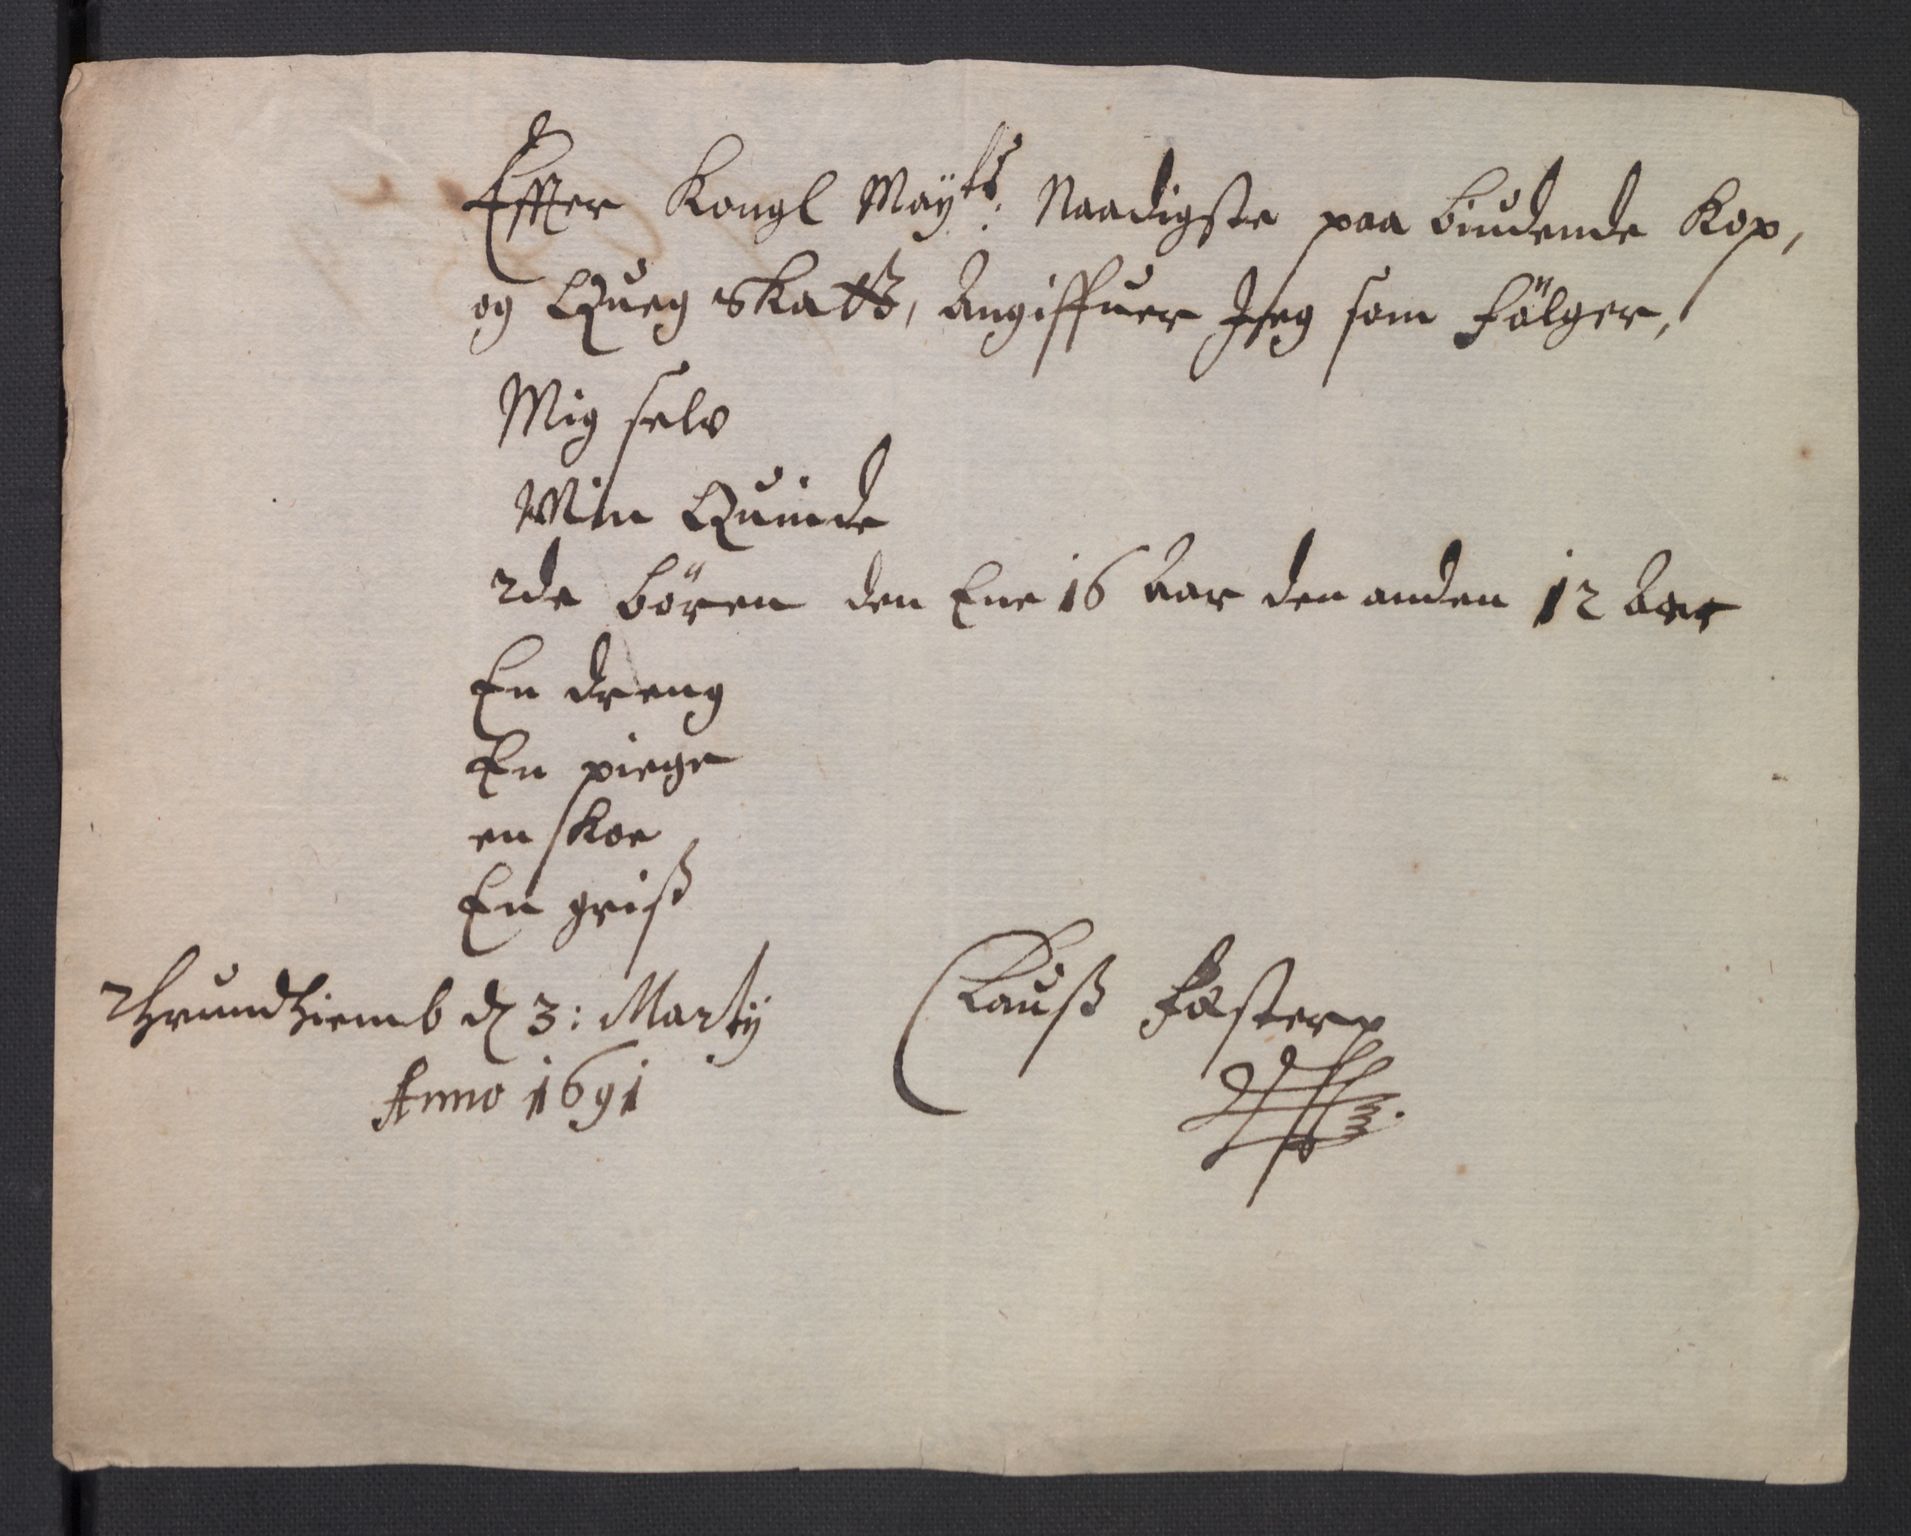 Effter Kongl Mayts: Naadigste paa biudende Kop,
og Queg Skatt, Angiffuer Jeg som fölger,
Mig selv
Min Quinde
2de bören den Ene 16 Aar den anden 12 Aar
En dreng
En piege
en Koe
En griß
Thrundhiemb d 3: Marty
Anno 1691
Clauß Fasterp